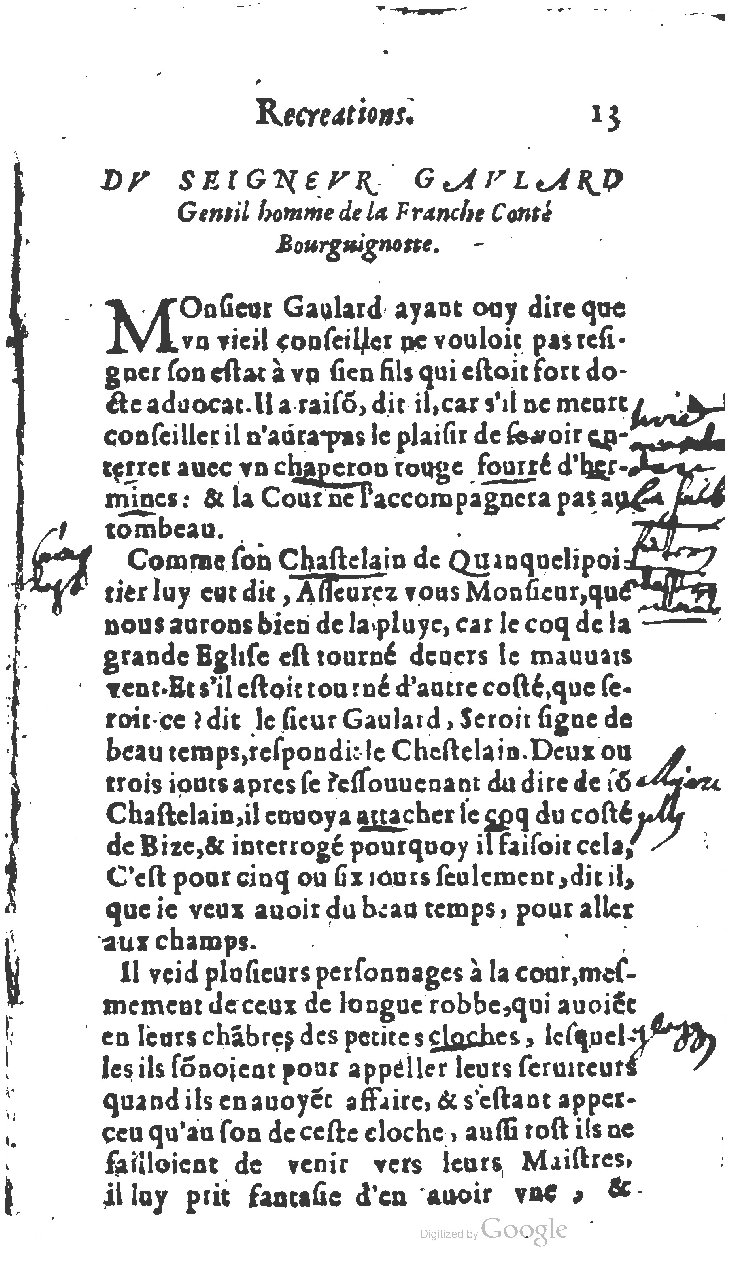 Recreations. 13
DV SEIGNEVR GAVLARD
Gentil homme de la Franche Conté
Bourguignotte.
MOnſieur Gaulard ayant ouy dire que
vn vieil conſeiller ne vouloit pas reſi-
gner ſon eſtat à vn ſien fils qui eſtoit fort do-
cte aduocat. Il a raiſō, dit il, car s'il ne meurt
conſeiller il n'aura pas le plaiſir de ſe voir en-
terrer auec vn chaperon rouge fourré d'her-
mines: & la Cour ne l'accompagnera pas au
tombeau.
Comme ſon Chaſtelain de Quinquelipoi-
tier luy eut dit, Aſſeurez vous Monſieur, que
nous aurons bien de la pluye, car le coq de la
grande Egliſe eſt tourné deuers le mauuais
vent. Et s'il eſtoit tourné d'autre coſté, que ſe-
roit-ce? dit le ſieur Gaulard, Seroit ſigne de
beau temps, reſpondit le Cheſtelain. Deux ou
trois iours apres ſe reſſouuenant du dire de ſō
Chaſtelain, il enuoya attacher le coq du coſté
de Bize, & interrogé pourquoy il faiſoit cela,
C'eſt pour cinq ou ſix iours ſeulement, dit il,
que ie veux auoir du beau temps, pour aller
aux champs.
Il veid pluſieurs perſonnages à la cour, meſ-
mement de ceux de longue robbe, qui auoiēt
en leurs chābres des petites cloches, leſquel-
les ils ſōnoient pour appeller leurs ſeruiteurs
quand ils en auoyēt affaire, & s'eſtant apper-
ceu qu'au ſon de ceſte cloche, auſſi toſt ils ne
failloient de venir vers leurs Maiſtres,
il luy prit fantaſie d'en auoir vne, &
Digitized by Google